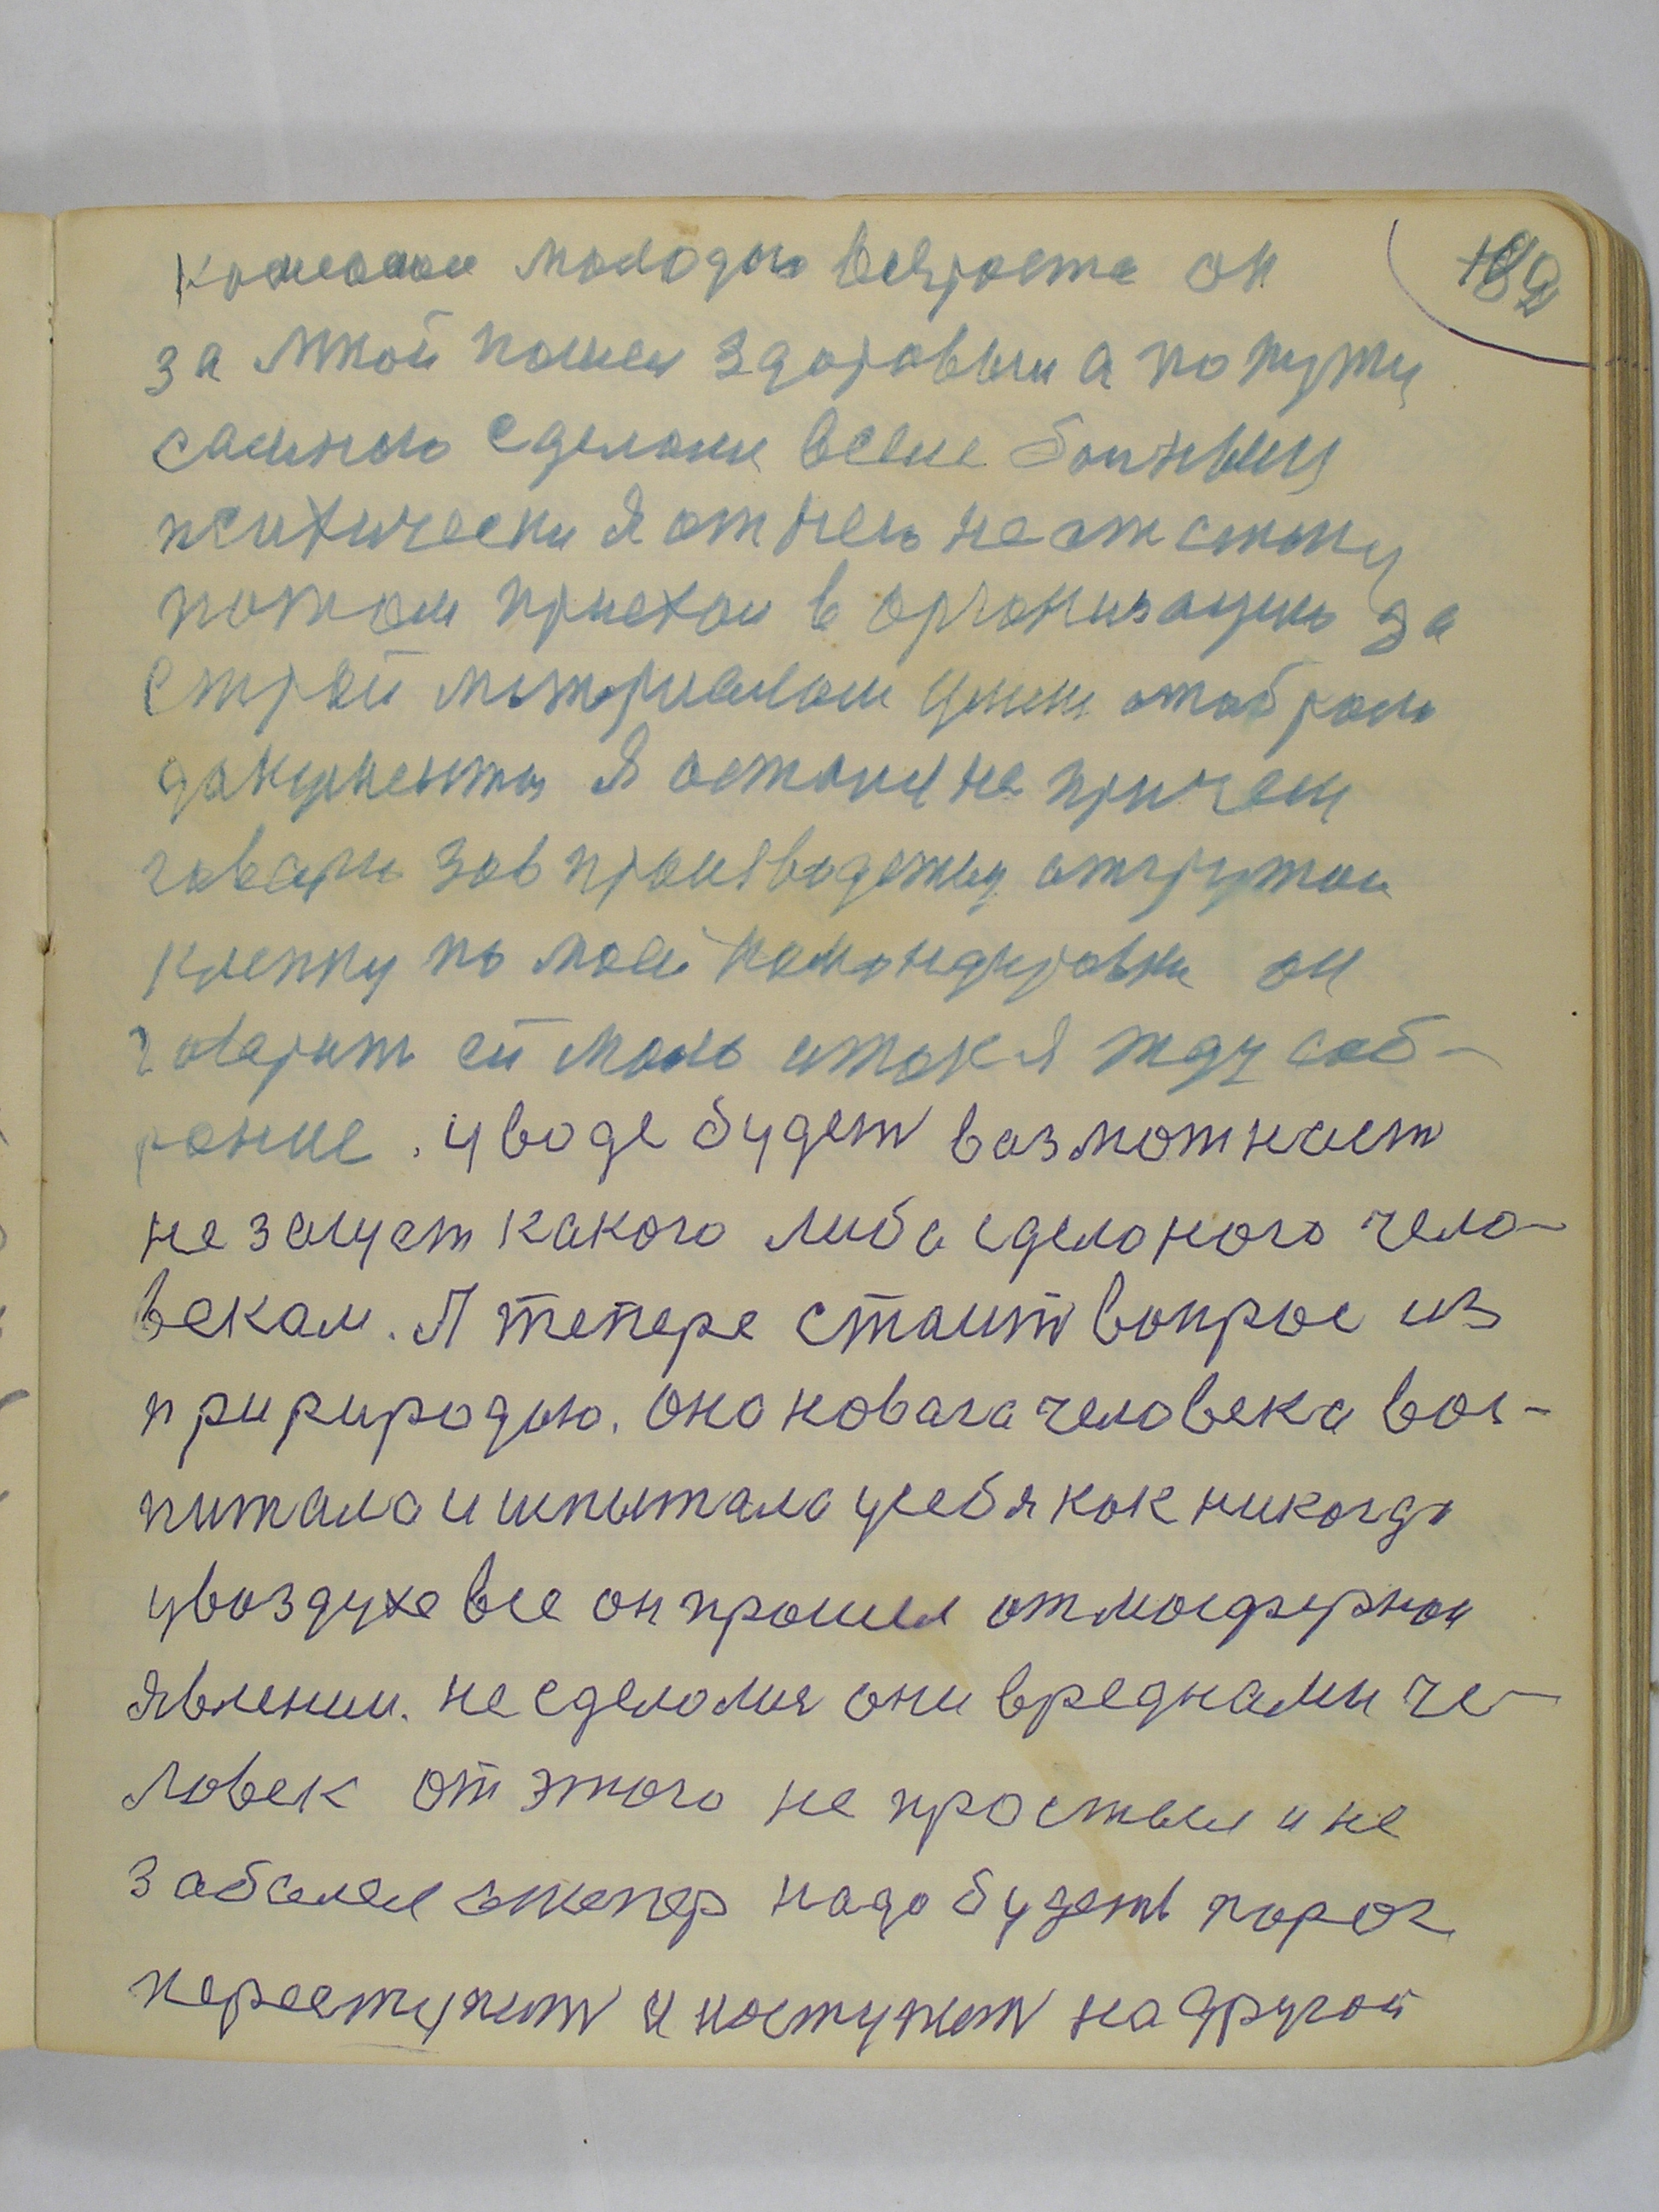 182
молодым возроста он
за мной пошел здоровым а по пути
самною сделали всеже больным
психически я от него не отстану
потом приехал в организацию за
строй мотириалом умене отобрали
документы я остался не причем
говарю зав производству отгрутай
клепку по моей командировки он
говарит ей мало итак я жду соб-
рание. у воде будет возможност
не зачуст какого либа сделоного чело-
векам. А тепере стаит вопрос из
пририродою. Она новага человека вос-
питала и испытала у себя как никогда
у воздухе все он прошел отмосфернои
явлении. не сделолися они вредными че-
ловек от этого не простыл и не
заболел а тепер надо будеть порог
переступит и поступит на другой